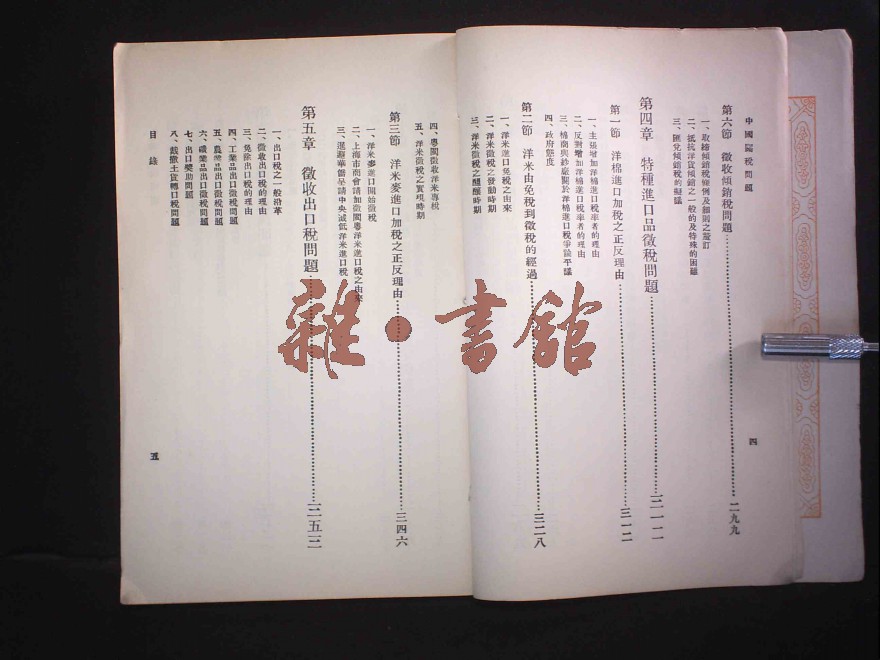 中國關稅問題
第六節 徵收傾銷稅問題 二九九
一、取締傾銷稅條例及細則之釐訂
二、抵抗洋貨傾銷之一般的及特殊的困難
三、匯兌傾銷稅的擬議
第四章 特種進口品徵稅問題 三一二
第一節 洋棉進口加稅之正反理由 三一二
一、主張增加洋棉進口稅率者的理由
二、反對增加洋棉進口稅率者的理由
三、棉商與紗廠關於洋棉進口稅爭論平議
四、政府態度
第二節 洋米由免稅到徵稅的經過 三二八
一、洋米進口免稅之由來
二、洋米徵稅之發動時期
三、洋米徵稅之醞釀時期
四
四、粵閩徵收洋米專稅
五、洋米徵稅之實現時期
第三節 洋米麥進口加稅之正反理由 三四六
一、洋米麥進口開始徵稅
二、上海市商會請加徵閩粵洋米進口稅之由來
三、暹羅華僑呈請中央減低洋米進口稅
第五章 徵收出口稅問題 三五三
一、出口稅之一般沿革
二、徵收出口稅的理由
三、免除出口稅的理由
四、工業品出口徵稅問題
五、農業品出口徵稅問題
六、礦業品出口徵稅問題
七、出口獎助問題
八、裁撤土貨轉口稅問題
目錄
五
雜·書館